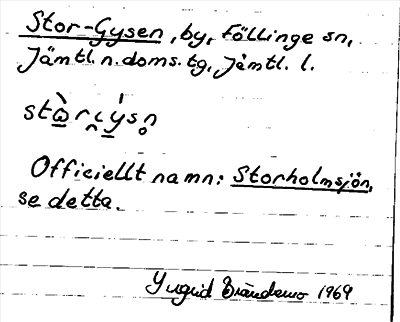 Stor-Gysen, by, Föllinge sn,
Jämtl. n. doms. tg, Jämtl. l.
Officiellt namn: Storholmsjön,
se detta.
Brändemo 1969